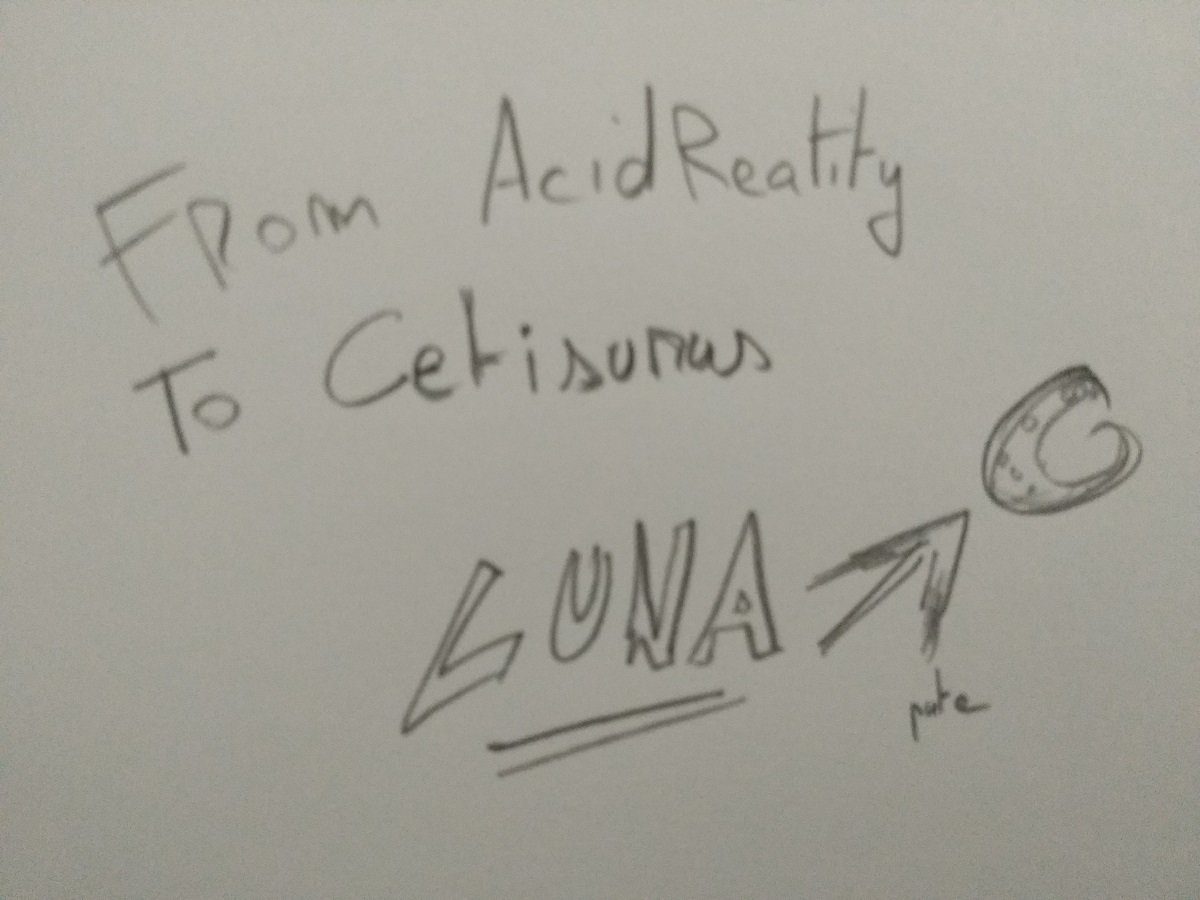 From AcidReality
To Cetisurus
LUNA